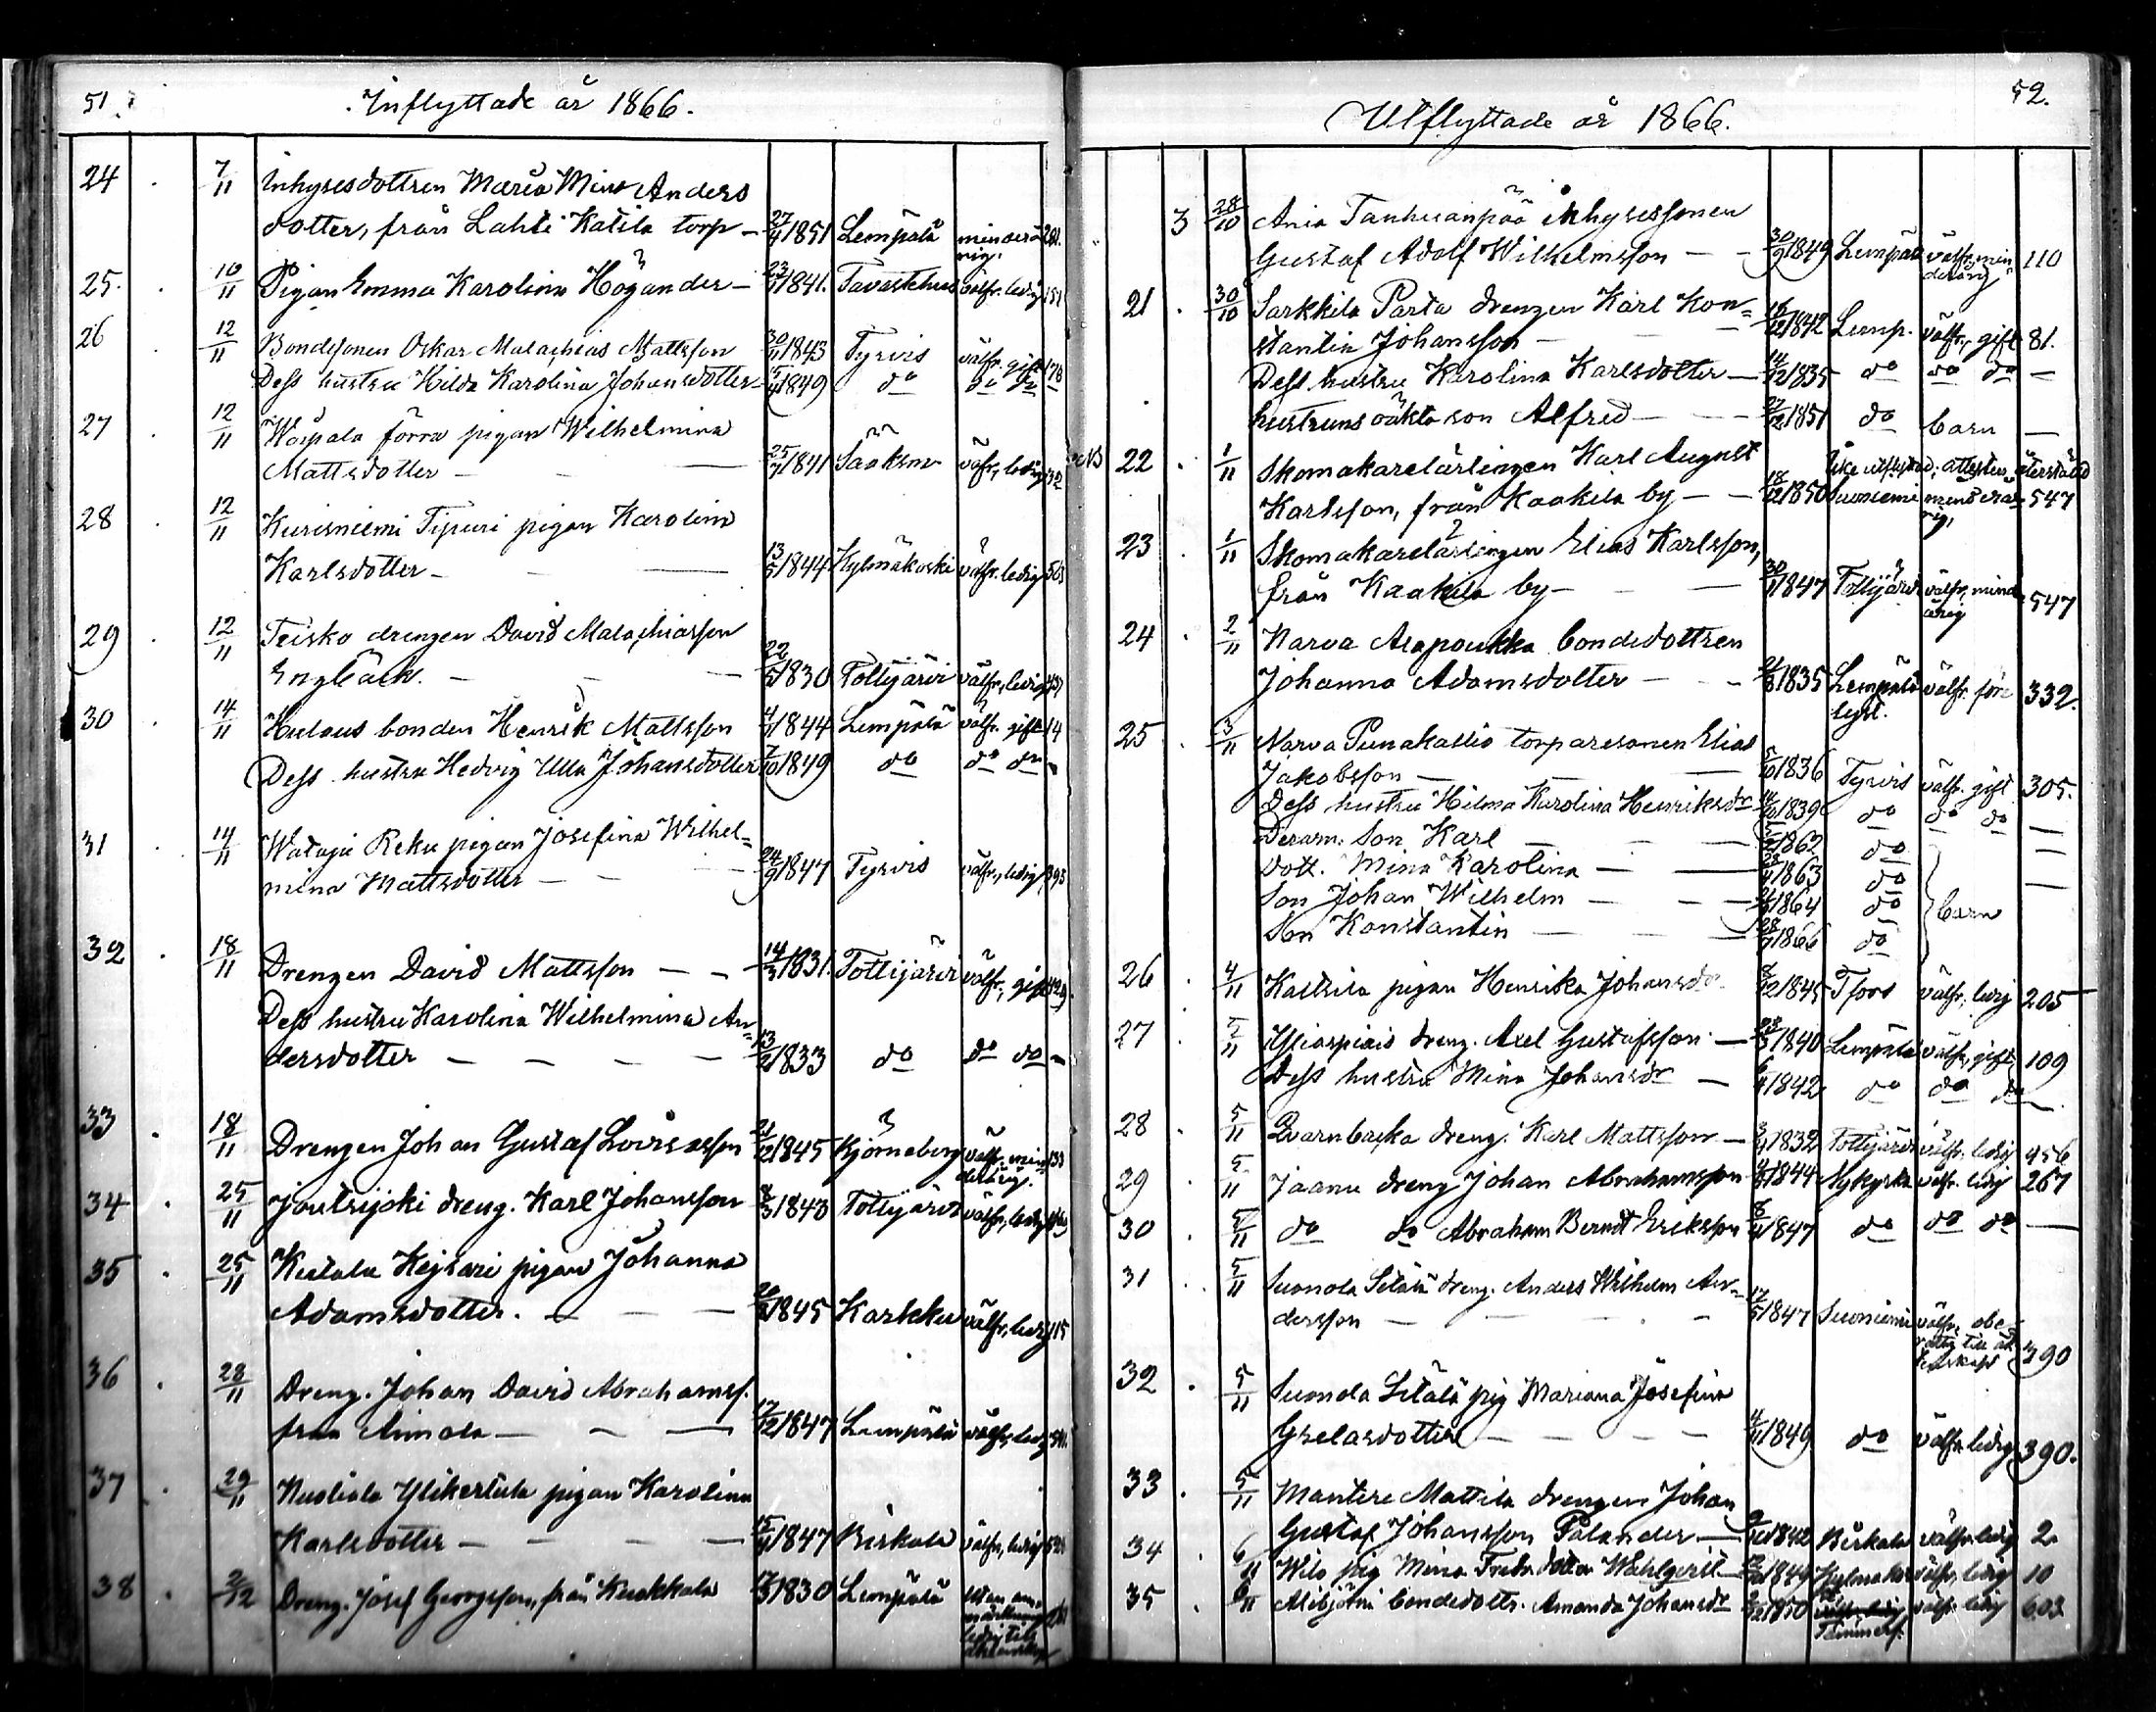 51.
Inflyttade år 1866.
24 7/11 Inhysesdottren Maria Mina Anders
dotter, från Lahti Katila torp 27/4 1851 Lempälä minderå 281.
rig.
25. 10/11 Pigan Emma Karolina Högander 1841. Tavastehus välfr. ledig 151
26 12/11 Bondesonen Oskar Malachias Mattsson 30/11 1843 Tyrvis välfr. gift 178
Dess hustru Hilda Karolina Johansdotter 1849 do do do
27 12/11 förra pigan Wilhelmina
Mattsdotter 25/7 1841 Sääksm välfr, ledig 32
28 12/11 Kurisniemi pigan Karolina
Karlsdotter 1844 Kylmäkoski välfr. ledig
29 12/11 Teisko drengen David Malachiasson
Engbäck. 22/5 1830 Tottijärvi välfr, ledig
30 14/11 bonden Henrik Mattsson 1844 Lempälä välfr. gift 14
Dess hustru Hedvig Ulla Johansdotter 7/10 1849 do do do
31 14/11 Wataja Reku pigan Josefina Wilhel=
mina Mattsdotter 24/9 1847 Tyrvis välfr, ledig 393
32 18/11 Drengen David Mattsson 14/3 1831. Tottijärvi välfr, gift
Dess hustru Karolina Wilhelmina An=
dersdotter 13/12 1833 do do do
33 18/11 Drengen Johan Gustaf 21/12 1845 Björneborg välfr. min
derårig.
34 25/11 dreng. Karl Johansson 8/3 1843 Tottijärvi välfr, ledig
35 25/11 Keisari pigan Johanna
Adamsdotter. 1845 Karkku välfr, ledig 115
36 28/11 Dreng. Johan David Abrahamss.
från Aimala 17/12 1847 Lempälä välfr, ledig
37 29/11 Ylikertula pigan Karolina
Karlsdotter 1847 Birkala välfr, ledig
38 2/12 Dreng. Josef Georgsson, från Kuokkala 1830 Lempälä Utan an-
märkning
ledig till
äktenskap
52.
Utflyttade år 1866.
3 28/10 Ania Tanhuanpää inhysessonen
Gustaf Adolf Wilhelmsson 30/9 1849 Lempälä välfr, min 110
derårig
21 30/10 Sarkkila Parta drengen Karl Kon=
stantin Johansson 16/12 1842 Lemp. välfr, gift 81.
Dess hustru Karolina Karlsdotter 14/12 1835 do do do —
hustruns oäkta son Alfred 27/12 1851 do barn —
NB 22 1/11 Skomakarelärlingen Karl August Icke utflyttad; attesten återställd
Karlsson, från Kaakila by 18/12 1850 Suoniemi minderå= 547
rig,
23 1/11 Skomakarelärlingen Elias Karlsson,
från Kaakila by 30/11 1847 Tottijärvi välfr, mind 547
årig
24 2/11 Narva Arapoukka bondedottren
Johanna Adamsdotter 1835 Lempälä välfr. före 332.
lyst.
25 3/11 Narva Punakallio torparesonen Elias
Jakobsson 5/10 1836 Tyrvis välfr. gift 305.
Dess hustru Hilma Karolina Henriksdr 1839 do do do —
Deram. Son Karl 1862 do —
Dott. Mina Karolina 1863 do —
Son Johan Wilhelm 1864 do barn
Son Konstantin 1866 do
26 4/11 Kastila pigan Henrika Johansdr 1845 Tfors välfr, ledig 205
27 5/11 dreng. Axel Gustafsson 1840 Lempälä välfr, gift 109
Dess hustru Mina Johansdr 1842 do do do
28 5/11 Qvarnbacka dreng. Karl Mattsson 1832 Tottijärvi välfr. ledig 456
29 5/11 Jaanu dreng Johan Abrahamsson 1844 Nykyrka välfr. ledig 267
30 5/11 do do Abraham Berndt Eriksson 1847 do do do —
31 5/11 Suonola Sitälä dreng. Anders Wilhelm An=
dersson 17/5 1847 Suoniemi välfr, obe-
rättig till äk
tenskap 390
32 5/11 Suonola Sitälä pig Mariana Josefina
Gselasdotter 1849 do välfr ledig 390.
33 5/11 Mantere Mattila drengen Johan
Gustaf Johansson Palander 1842 Birkala välfr ledig 2
34 6/11 Wilo pig Mina Fredr. dotter Wahlqvist 1849 Kylmäkos välfr, ledig 10
35 6/11 Alibjörni bondedottr. Amanda Johansdr 1850 välfr. ledig 603
Tammerf.